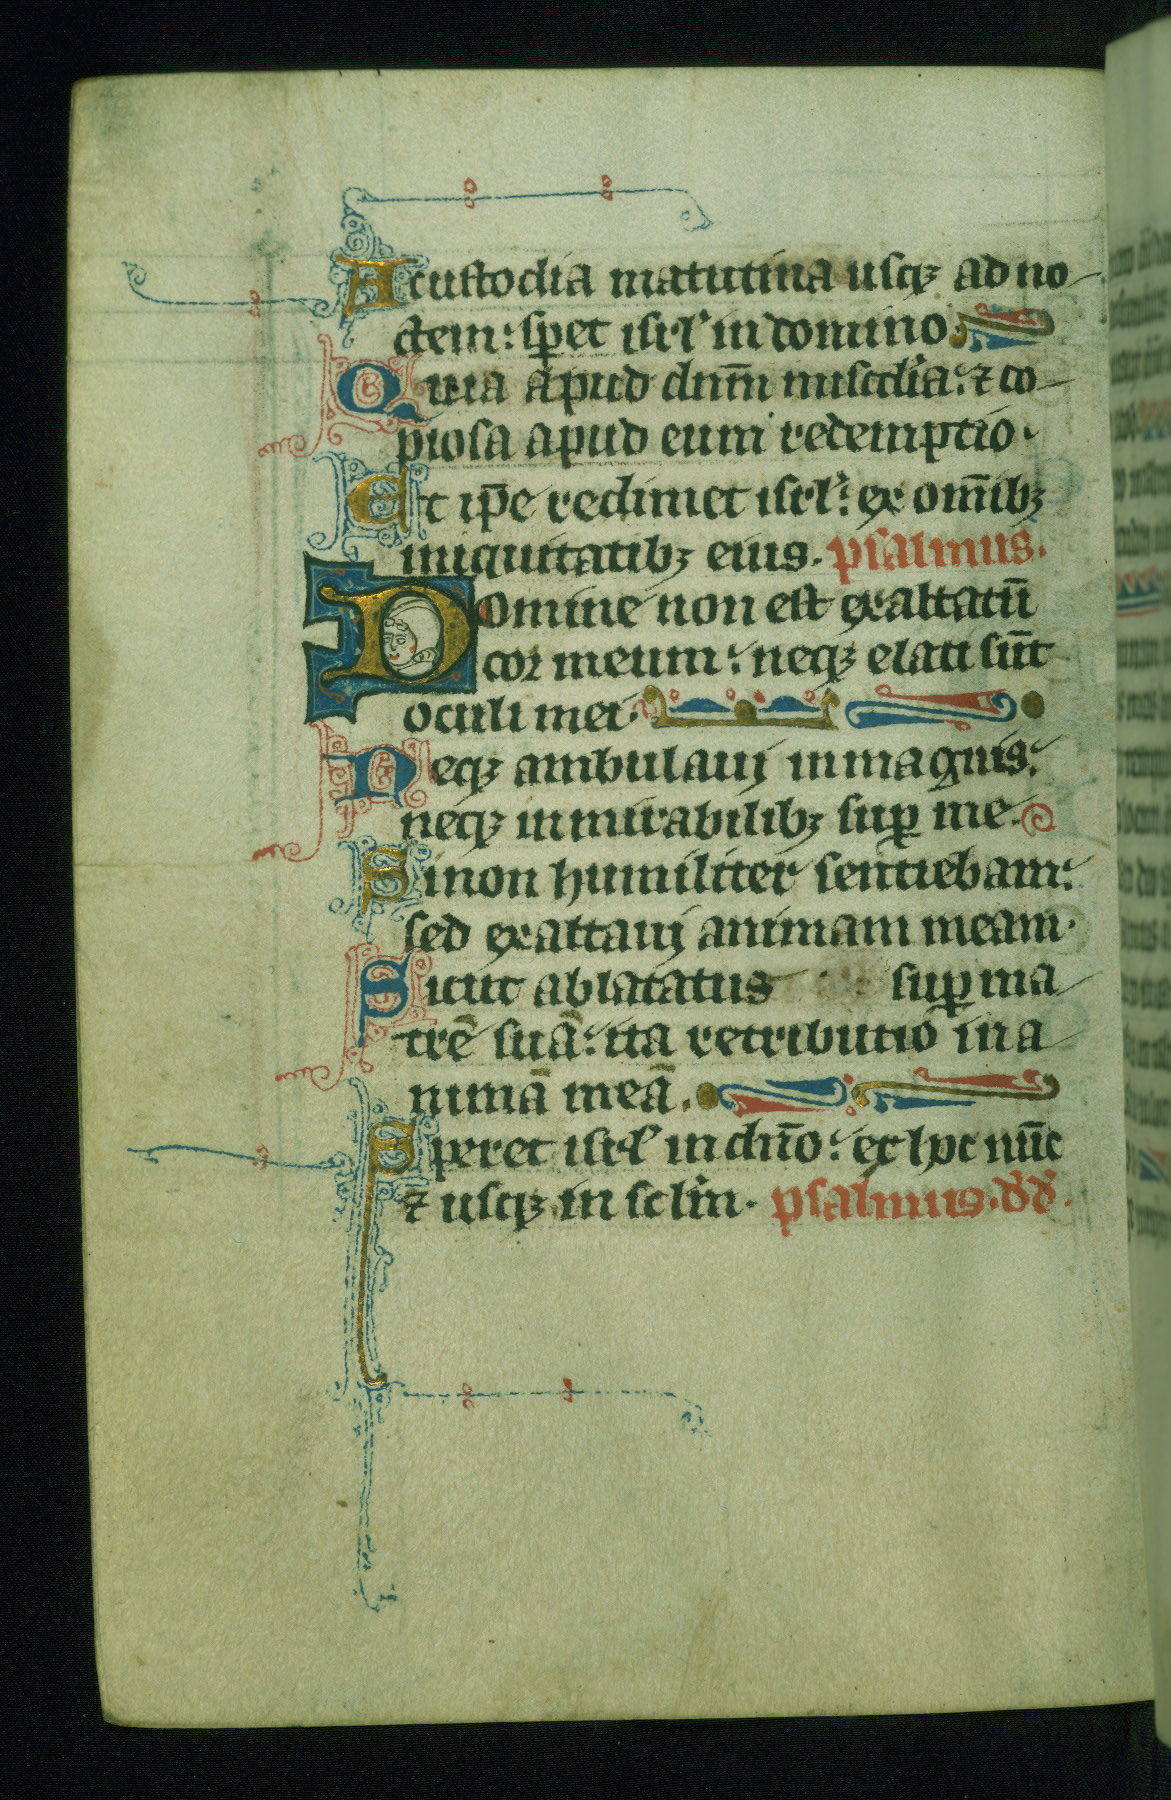 A custodia matutina usqꝫ ad no
ctem: sꝑet isrl' in domino.
Quia apud dnm̄ misc̄dia: ⁊ co
piosa apud eum redemptio.
Et ip̄e redimet isrl': ex om̄ibꝫ
iniquitatibꝫ eius. psalmus.
Domine non est exaltatū
cor meum: neqꝫ elati sūt
oculi mei.
Neqꝫ ambulauj in magnis:
neqꝫ in mirabilibꝫ suꝑ me.
Si non humiliter sentiebam:
sed exaltauj animam meam.
Sicut ablatatus suꝑ ma
trē suā: ita retributio in a
nimā meā.
Speret isrl' in dn̄o: ex hoc nūc
⁊ usqꝫ in sclm̄. psalmus. dd̄.